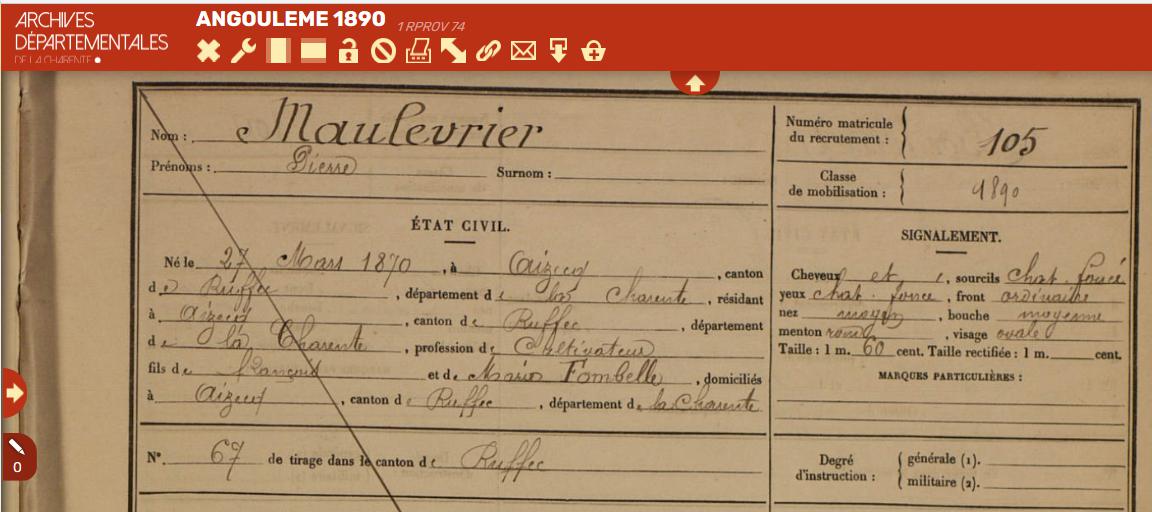 ARCHIVES
DÉPARTEMENTALES
DE LA CHARENTE
ANGOULEME 1890 1 RPROV 74
Nom : Maulevrier
Prénoms : Pierre Surnom :
Numéro matricule
du recrutement : 105
Classe
de mobilisation : 1890
ÉTAT CIVIL.
Né le 27 Mars 1870, à Aizecq, canton
de Ruffec, département de la Charente, résidant
à Aizecq, canton de Ruffec, département
de la Charente, profession de Cultivateur
fils de François et de Marie Fombelle, domiciliés
à Aizecq, canton de Ruffec, département de la Charente
N° 67 de tirage dans le canton de Ruffec
SIGNALEMENT.
Cheveux et, sourcils chat. foncé
yeux chat. foncé, front ordinaire
nez moyen, bouche moyenne
menton rond, visage ovale
Taille : 1 m. 60 cent. Taille rectifiée : 1 m. cent.
MARQUES PARTICULIÈRES :
Degré
d'instruction :
générale (1).
militaire (2).
0